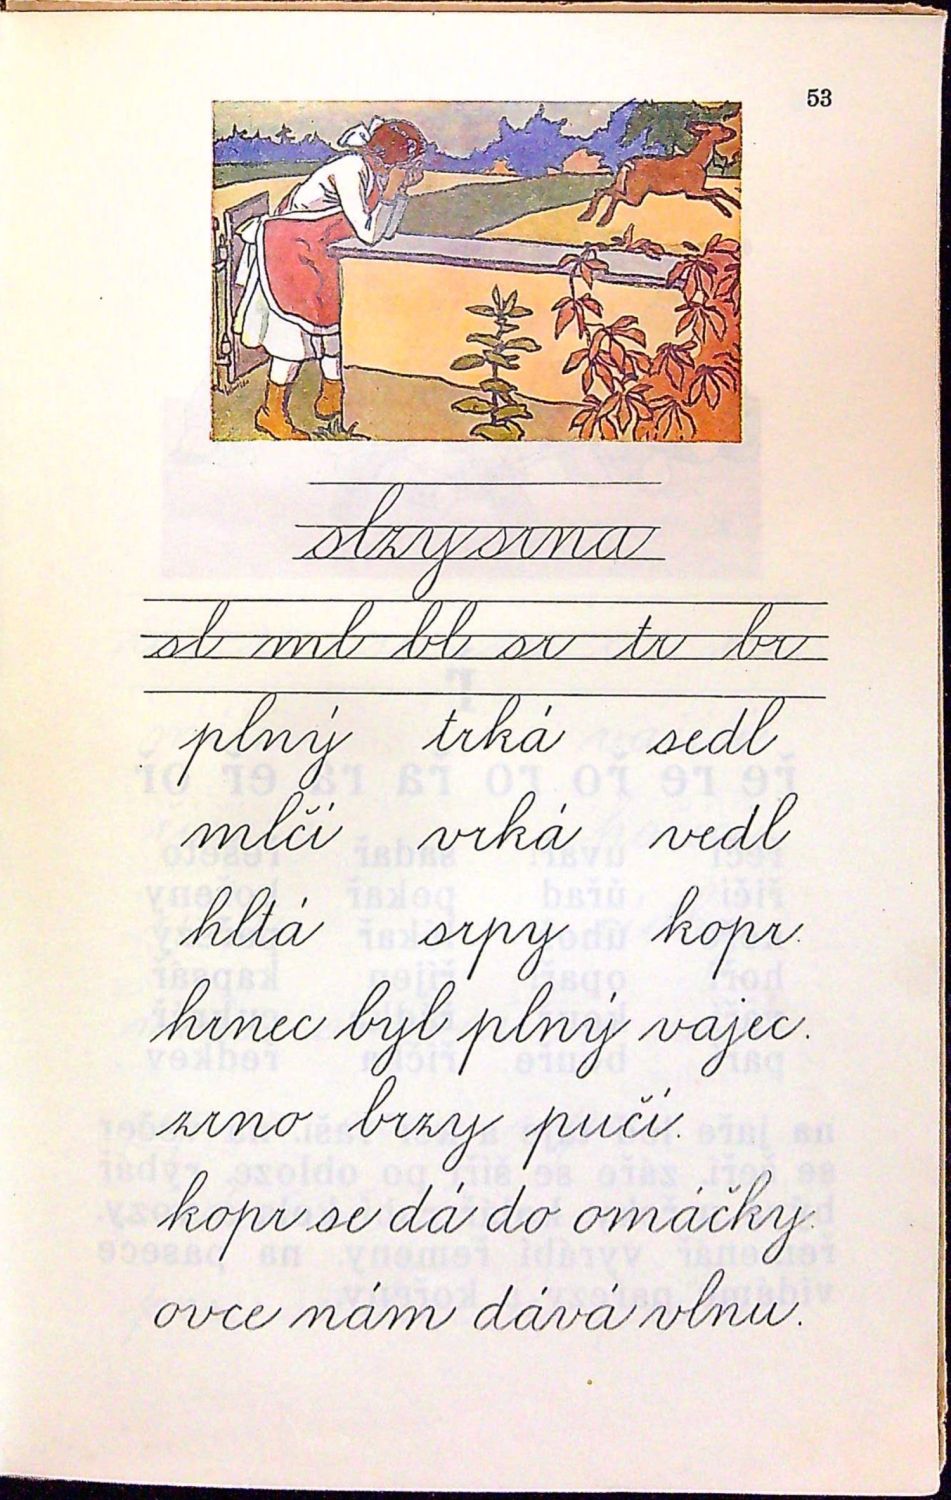 53
slzy srna
sl ml bl sr tr br
plný trká sedl
mlčí vrká vedl
hltá srpy kopr.
hrnec byl plný vajec.
zrno brzy pučí.
kopr se dá do omáčky.
ovce nám dává vlnu.